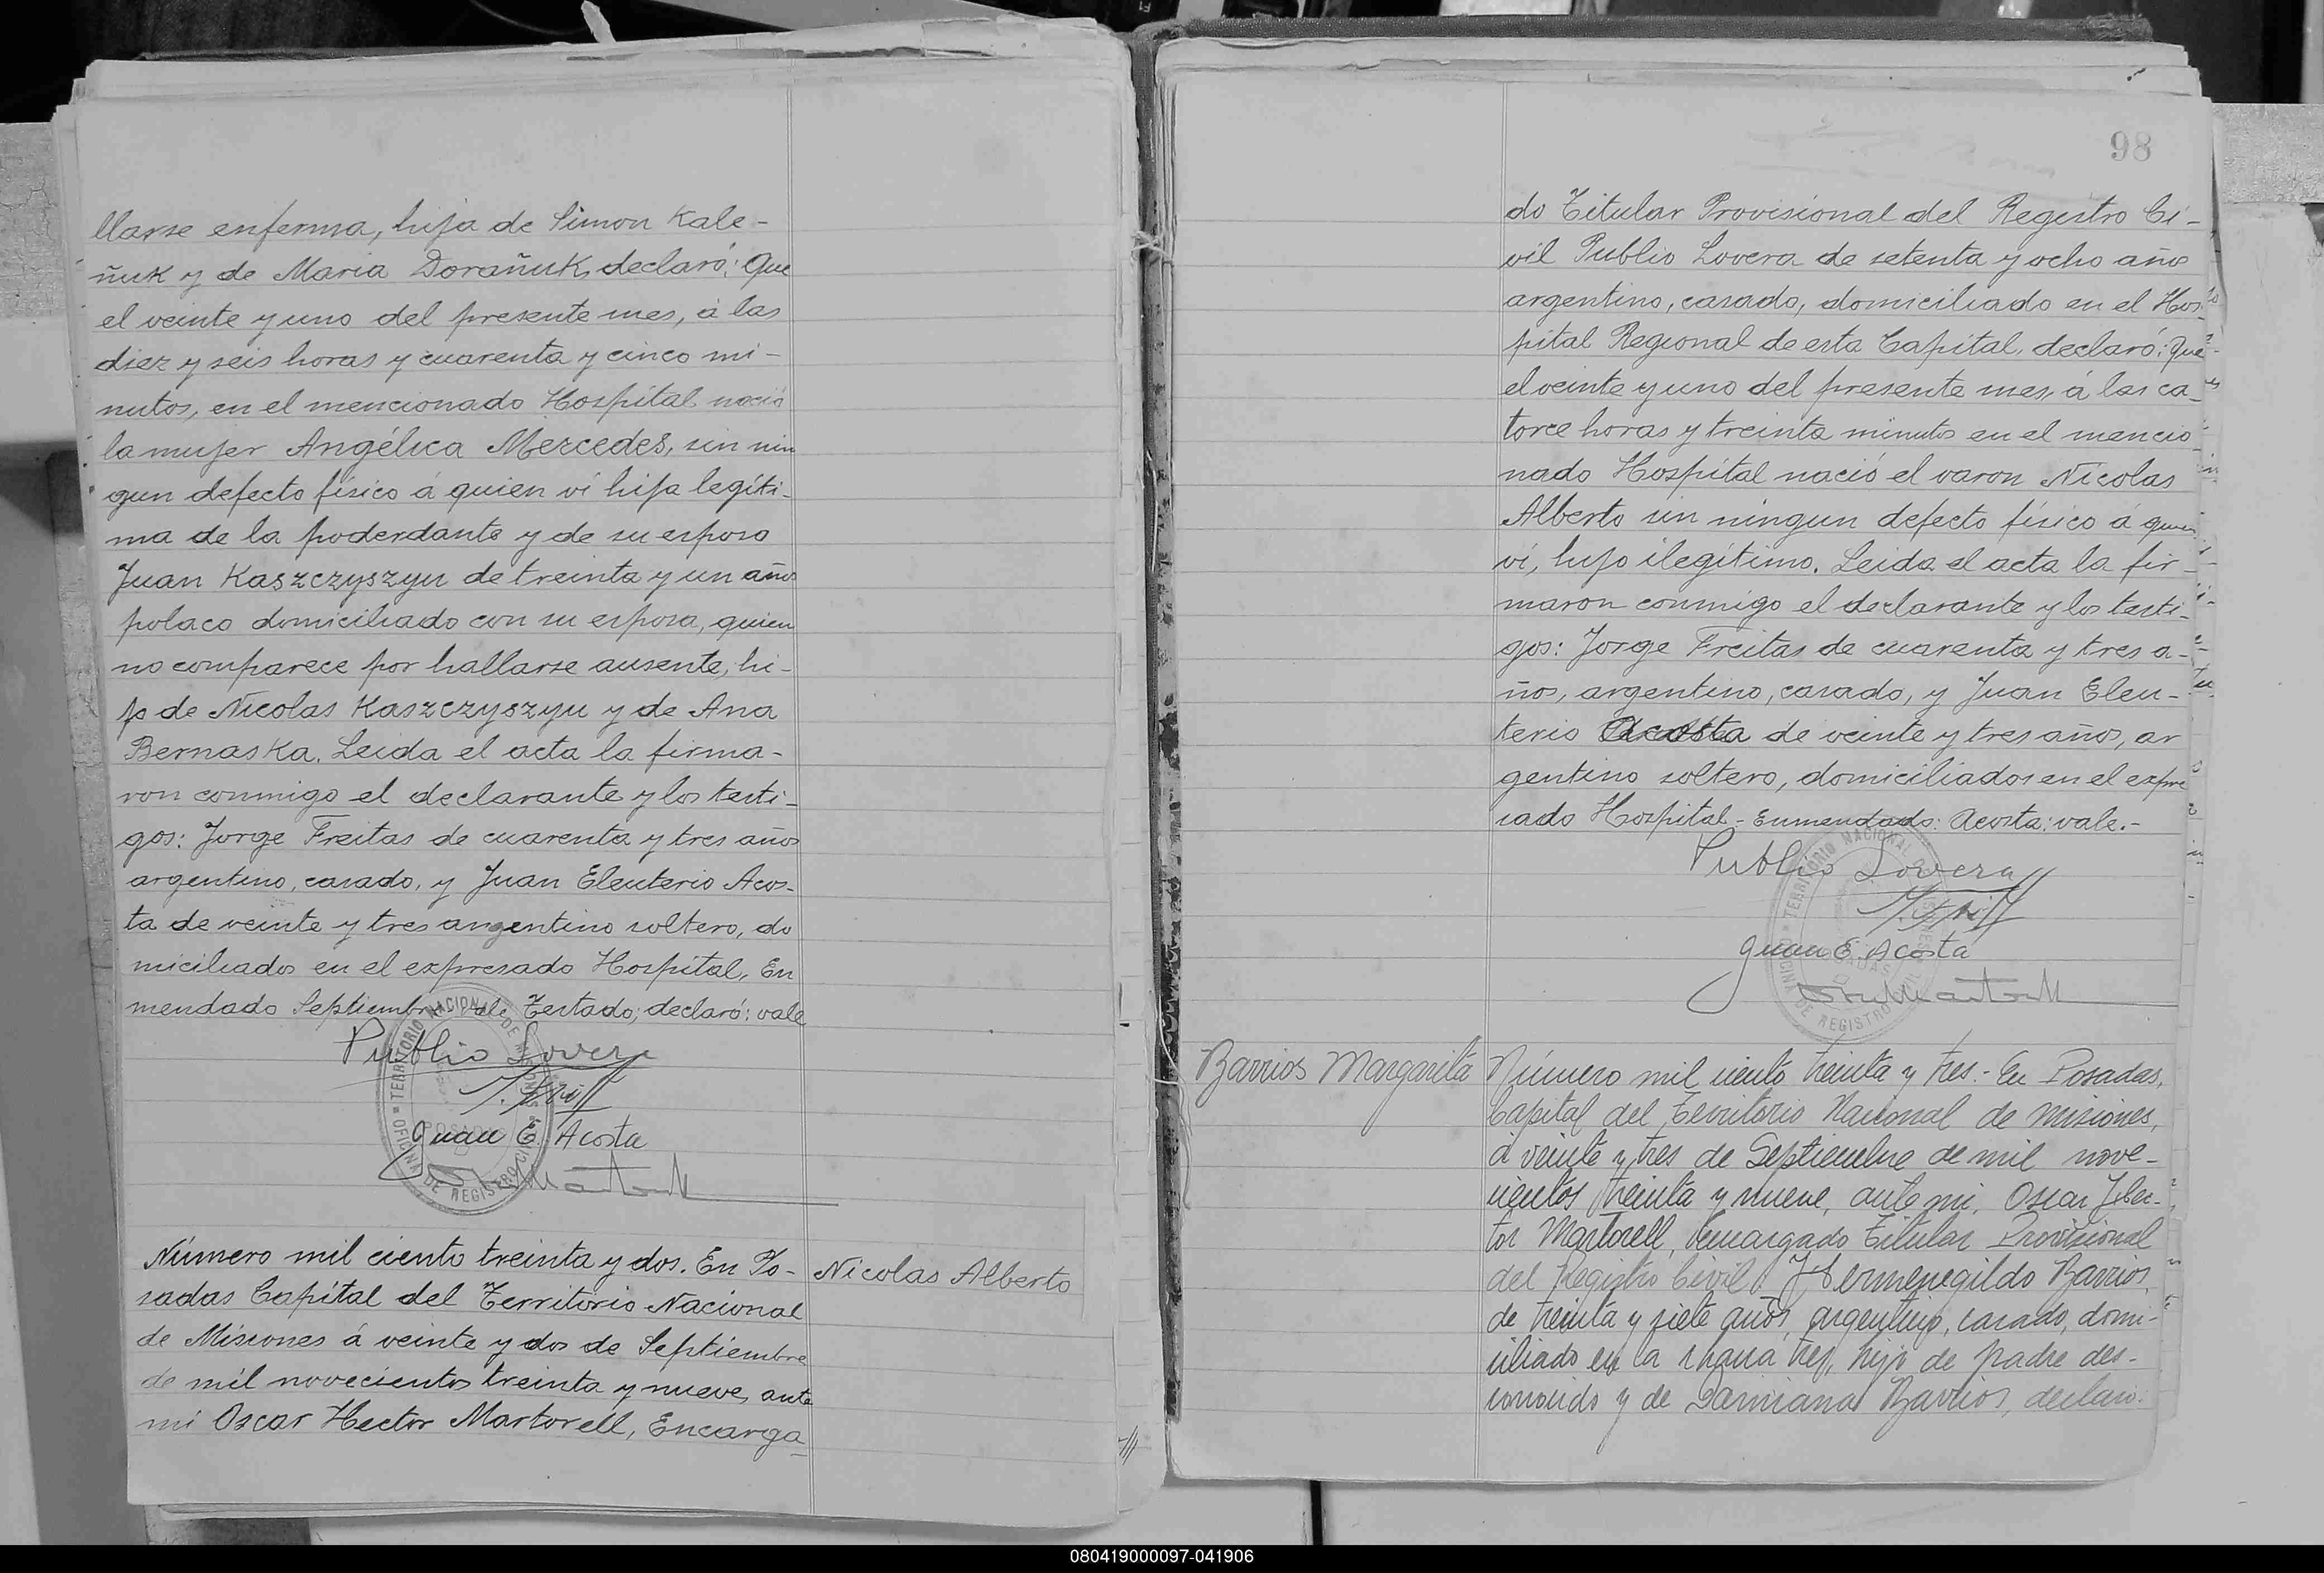 llarse enferma, hija de Simon Kale-
ñuk y de Maria Dorañuk, declaró: Que
el veinte y uno del presente mes, á las
diez y seis horas y cuarenta y cinco mi-
nutos, en el mencionado Hospital nació
la mujer Angélica Mercedes, sin nin
gun defecto físico á quien ví hija legíti-
ma de la poderdante y de su esposo
Juan Kaszczyszyn de treinta y un años
polaco domiciliado con su esposa, quien
no comparece por hallarse ausente, hi-
jo de Nicolas Kaszczyszyn y de Ana
Bernaska. Leida el acta la firma-
ron conmigo el declarante y los testi-
gos: Jorge Freitas de cuarenta y tres años
argentino, casado, y Juan Eleuterio Acos-
ta de veinte y tres argentino soltero, do
miciliados en el expresado Hospital, En
mendado Septiembre vale Testado; declaró: vale
Publio Lovera
Juan E. Acosta
OFICINA DE REGISTRO CIVIL TERRITORIO NACIONAL DE MISIONES POSADAS
Número mil ciento treinta y dos. En Po-
sadas Capital del Territorio Nacional
de Misiones á veinte y dos de Septiembre
de mil novecientos treinta y nueve, ante
mi Oscar Hector Martorell, Encarga
Nicolas Alberto
98
do Titular Provisional del Registro Ci-
vil Publio Lovera de setenta y ocho años
argentino, casado, domiciliado en el Hos-
pital Regional de esta Capital, declaró: Que
el veinte y uno del presente mes, á las ca-
torce horas y treinta minutos en el mencio
nado Hospital nació el varon Nicolas
Alberto sin ningun defecto físico á quien
ví, hijo ilegítimo. Leida el acta la fir-
maron conmigo el declarante y los testi-
gos: Jorge Freitas de cuarenta y tres a-
ños, argentino, casado, y Juan Eleu-
terio Acosta de veinte y tres años, ar
gentino soltero, domiciliados en el expre
sado Hospital - Enmendado: Acosta: vale.-
Publio Lovera
Juan E. Acosta
OFICINA DE REGISTRO TERRITORIO NACIONAL
Barrios Margarita
Número mil ciento treinta y tres.- En Posadas,
Capital del Territorio Nacional de Misiones,
á veinte y tres de Septiembre de mil nove-
cientos treinta y nueve, ante mi, Oscar Hec-
tor Martorell, Encargado Titular Provisional
del Registro Civil, Hermenegildo Barrios,
de treinta y siete años, argentino, casado, domi-
ciliado en la chacra tres, hijo de padre des-
conocido y de Damiana Barrios, declaró:
080419000097-041906